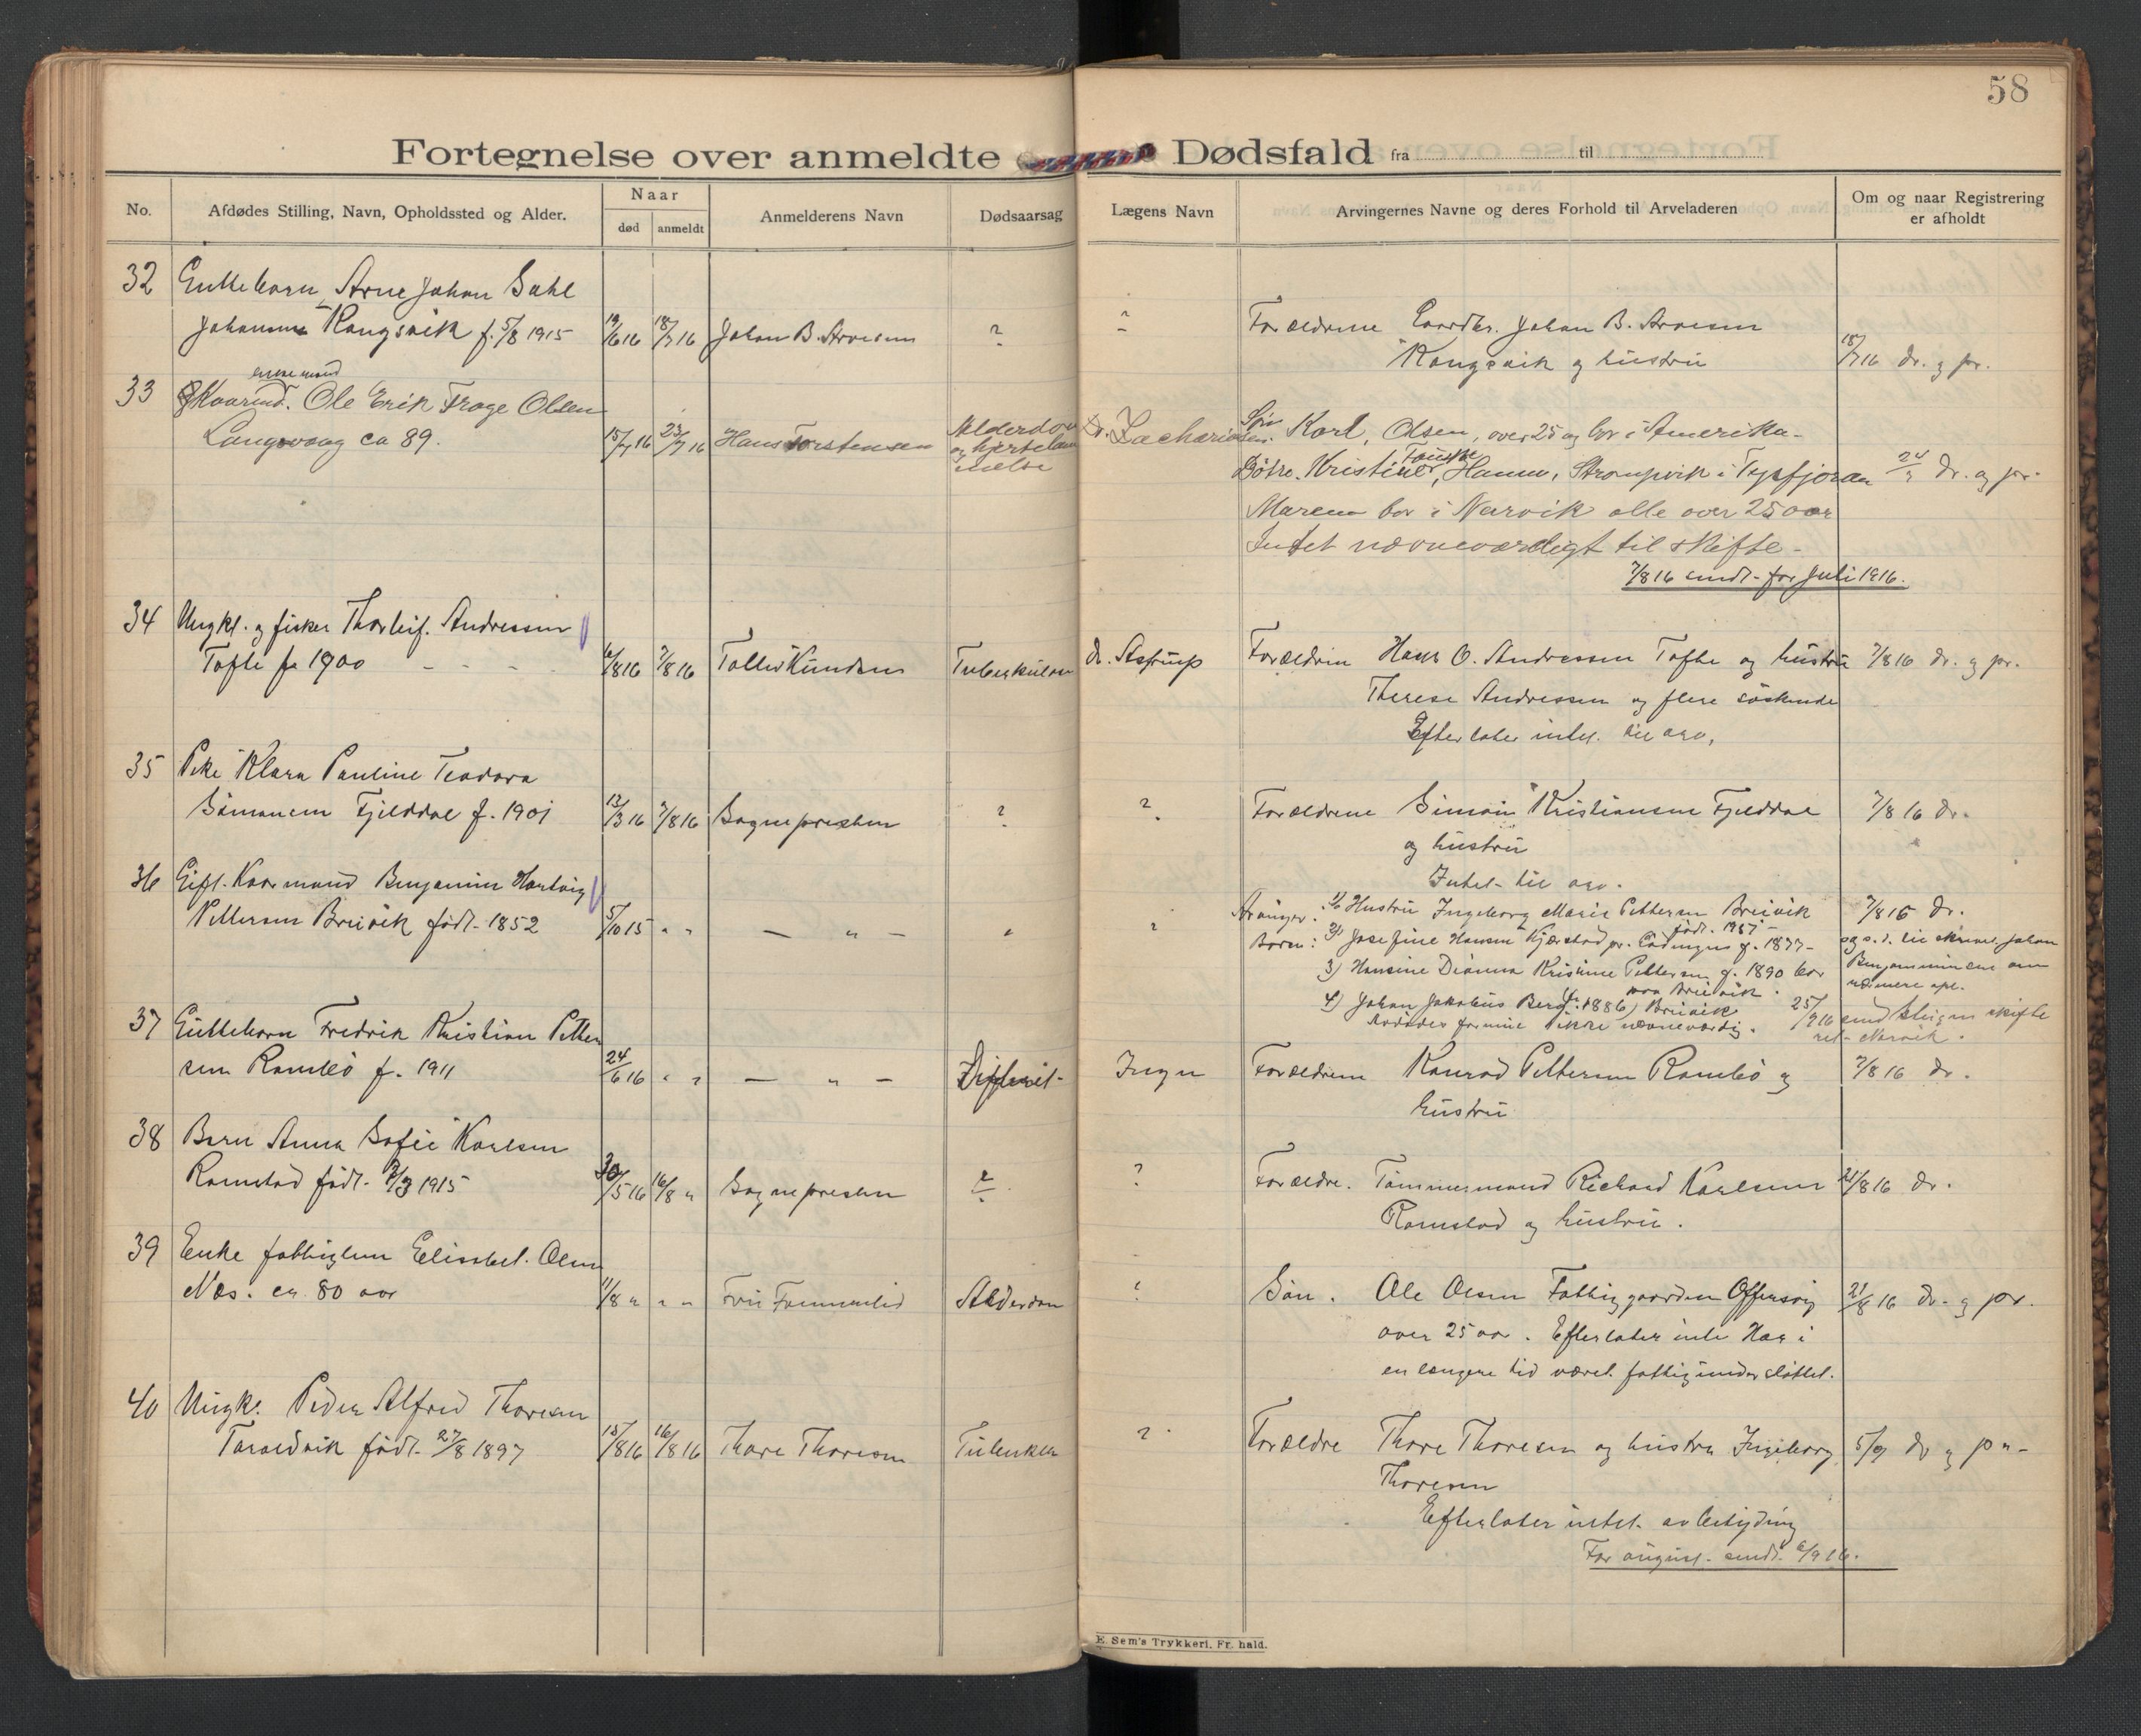 58
Fortegnelse over anmeldte Dødsfald fra til
No. Afdødes Stilling, Navn, Opholdssted og Alder. Naar død anmeldt Anmelderens Navn Dødsaarsag Lægens Navn Arvingernes Navne og deres Forhold til Arveladeren Om og naar Registrering er afholdt
32 Guttebarn, Arne Johan Dahl
Johansen Kongsvik f. 5/8 1915 19/6 16 18/7 16 Johan B. Arvesen ? ?
Forældrene Gaardbr. Johan B. Arvesen
Kongsvik og hustru 18/7 16 dr. g pr.
33 enkemand
Kaarmd. Ole Erik Olsen
ca 89. 15/7 16 23/7 16 Hans Torstensen Alderdom og hjertelammelse
Dr. Zachariasen. Søn Karl, Olsen, over 25 og bor i Amerika-
Døtre. Kristine, Hanna, i Tysfjorden 24/7 dr. og pr.
Maren bor i Narvik alle over 25 aar
Intet nævneværdigt til skifte-
7/8 16 sendt for Juli 1916.
34 Ungkl. og fisker Thorleif. Andressen
Tofte f. 1900 6/8 16 7/8 16 Knudsen Tuberkulose dr. Astrup
Forældrene Hans O. Andressen Tofte og hustru 7/8 16 dr. g pr.
Therese Andressen og flere søskende
Efterlater intet til arv.
35 Pike Klara Pauline Teodora
Simonsen Fjelddal f. 1901 13/3 16 7/8 16 Sognepresten ? ?
Forældrene Simon Kristiansen Fjelddal 7/8 16 dr.
og hustru
Intet til arv.
36 Gift. Kaarmand Benjamin Hartvig
Pettersen Breivik født 1852 5/10 15 " " — " — " ?
Arvinger: 1) Hustru Ingeborg Marie Pettersen Breivik født. 7/8 16 dr.
Børn: 2) Josefine Hansen Kjærstad pr. Lødingen f. 1877-
3) Hansine Kristine Pettersen f. 1890 bor paa Breivik.
4) Johan Jakobus Berg f. 1886, Breivik
formue ikke nævneværdig.
og s. d. til skrevet Johan
Benjaminsen om
nærmere opl.
25/9 16 send skifte
ret Narvik.
37 Guttebarn Fredrik Kristian Petter
sen Rambø f. 1911 24/6 16 " " — " — Difterit Ingen
Forældrene Konrad Pettersen Rambø og 7/8 16 dr.
hustru
38 Barn Anna Sofie Karlsen
Ramstad født 1915 30/5 16 16/8 " Sognepresten ? ?
Forældre. Tømmermand Richard Karlsen 21/8 16 dr.
Ramstad og hustru.
39 Enke fattiglem Elisabet. Olsen
Næs. ca. 80 aar 11/8 " " " Fru Alderdom ?
Søn. Ole Olsen Fattiggaarden Offersøy 21/8 16 dr. g pr.
over 25 aar. Efterlater intet Har i
en længere tid været fattigunderstøttet.
40 Ungk. Peder Alfred Thoresen
født 27/8 1897 15/8 16 16/8 16 Thore Thoresen ?
Forældre Thore Thoresen og hustru Ingeborg 5/9 dr g pr-
Thoresen
Efterlater intet av betydning
For august sendt 6/9 16.
E. Sem's Trykkeri, Fr. hald.